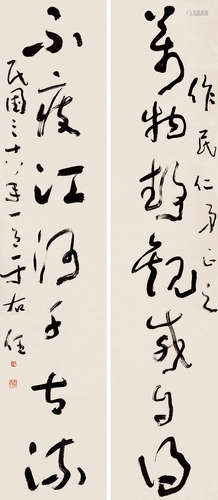 萬物靜觀咸自得
作民仁弟正之
不廢江河千古流
民國三十八年一月一于右任